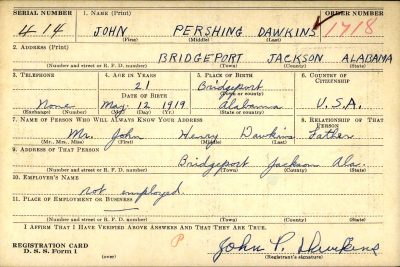 SERIAL NUMBER 1. NAME (Print) ORDER NUMBER
414 JOHN PERSHING DAWKINS 1718
(First) (Middle) (Last)
2. ADDRESS (Print)
BRIDGEPORT JACKSON ALABAMA
(Number and street or R. F. D. number) (Town) (County) (State)
3. TELEPHONE 4. AGE IN YEARS 5. PLACE OF BIRTH 6. COUNTRY OF CITIZENSHIP
21 Bridgeport
DATE OF BIRTH (Town or county)
None May 12 1919 Alabama U.S.A.
(Exchange) (Number) (Mo.) (Day) (Yr.) (State or country)
7. NAME OF PERSON WHO WILL ALWAYS KNOW YOUR ADDRESS 8. RELATIONSHIP OF THAT PERSON
Mr. John Henry Dawkins Father
(Mr., Mrs., Miss) (First) (Middle) (Last)
9. ADDRESS OF THAT PERSON
Bridgeport Jackson Ala.
(Number and street or R. F. D. number) (Town) (County) (State)
10. EMPLOYER'S NAME
not employed
11. PLACE OF EMPLOYMENT OR BUSINESS
(Number and street or R. F. D. number) (Town) (County) (State)
I AFFIRM THAT I HAVE VERIFIED ABOVE ANSWERS AND THAT THEY ARE TRUE.
REGISTRATION CARD P John P. Dawkins
D. S. S. Form 1 (over) (Registrant's signature)